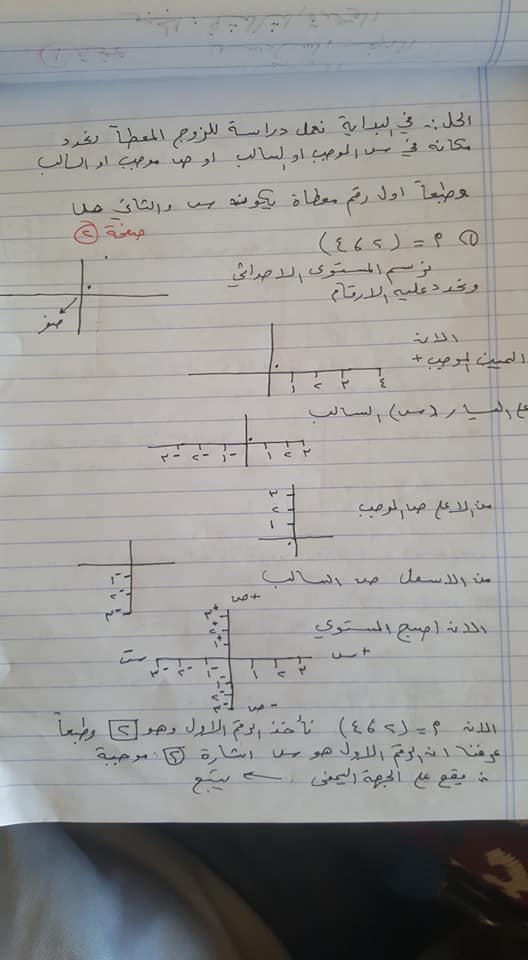 الحل:- في البداية نعمل دراسة للزوج المعطاً نحدد
مكانه في س الموجب او السالب او ص موجب او السالب
وطبعاً اول رقم معطاة يكون س والثاني ص
صفحة ٢
١ م = (٢ ، ٤)
نرسم المستوى الاحداثي
ونحدد عليه الارقام
صفر
الان
اليمين الموجب +
١ ٢ ٣ ٤
على اليسار (س) السالب
-٣ -٢ -١ ١ ٢ ٣
من الاعلى ص الموجب
٣
٢
١
من الاسفل ص السالب
-١
-٢
-٣
الان اصبح المستوي
+ص
+٣
+٢
+١
+س
-س
-٣ -٢ -١ ١ ٢ ٣
-١
-٢
-٣
-ص
الان م = (٢ ، ٤) نأخذ الرقم الاول وهو ٢ وطبعاً
عرفنا ان الرقم الاول هو س اشارة ٢ موجبة
يقع على الجهة اليمنى ← يتبع